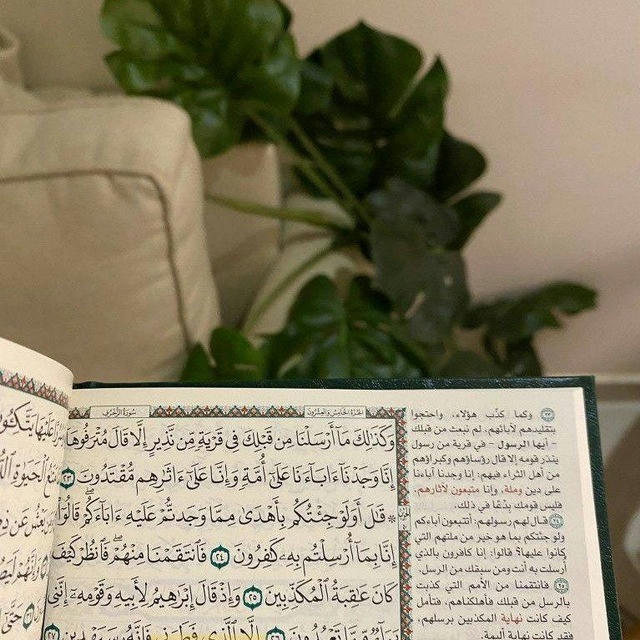 الجزء الخامس والعشرون
سورة الزخرف
وَكَذَٰلِكَ مَآ أَرْسَلْنَا مِن قَبْلِكَ فِى قَرْيَةٍ مِّن نَّذِيرٍ إِلَّا قَالَ مُتْرَفُوهَآ
إِنَّا وَجَدْنَآ ءَابَآءَنَا عَلَىٰٓ أُمَّةٍ وَإِنَّا عَلَىٰٓ ءَاثَٰرِهِم مُّقْتَدُونَ ٢٣
۞ قَٰلَ أَوَلَوْ جِئْتُكُم بِأَهْدَىٰ مِمَّا وَجَدتُّمْ عَلَيْهِ ءَابَآءَكُمْ ۖ قَالُوٓا۟
إِنَّا بِمَآ أُرْسِلْتُم بِهِۦ كَٰفِرُونَ ٢٤ فَٱنتَقَمْنَا مِنْهُمْ ۖ فَٱنظُرْ كَيْفَ
كَانَ عَٰقِبَةُ ٱلْمُكَذِّبِينَ ٢٥ وَإِذْ قَالَ إِبْرَٰهِيمُ لِأَبِيهِ وَقَوْمِهِۦٓ إِنَّنِى
بَرَآءٌ مِّمَّا تَعْبُدُونَ ٢٦ إِلَّا ٱلَّذِى فَطَرَنِى فَإِنَّهُۥ سَيَهْدِينِ ٢٧
٢٣ وكما كذّب هؤلاء، واحتجوا
بتقليدهم لآبائهم، لم نبعث من قبلك
- أيها الرسول - في قرية من رسول
ينذر قومه إلا قال رؤساؤهم وكبراؤهم
من أهل الثراء فيهم: إنا وجدنا آباءنا
على دين وملة، وإنا متبعون لآثارهم.
فليس قومك بدعًا في ذلك.
٢٤ قال لهم رسولهم: أتتبعون آباءكم
ولو جئتكم بما هو خير من ملتهم التي
كانوا عليها؟ قالوا: إنا كافرون بالذي
أرسلت به أنت ومن سبقك من الرسل.
٢٥ فانتقمنا من الأمم التي كذبت
بالرسل من قبلك فأهلكناهم، فتأمل
كيف كانت نهاية المكذبين برسلهم،
فقد كانت نهاية أليمة.